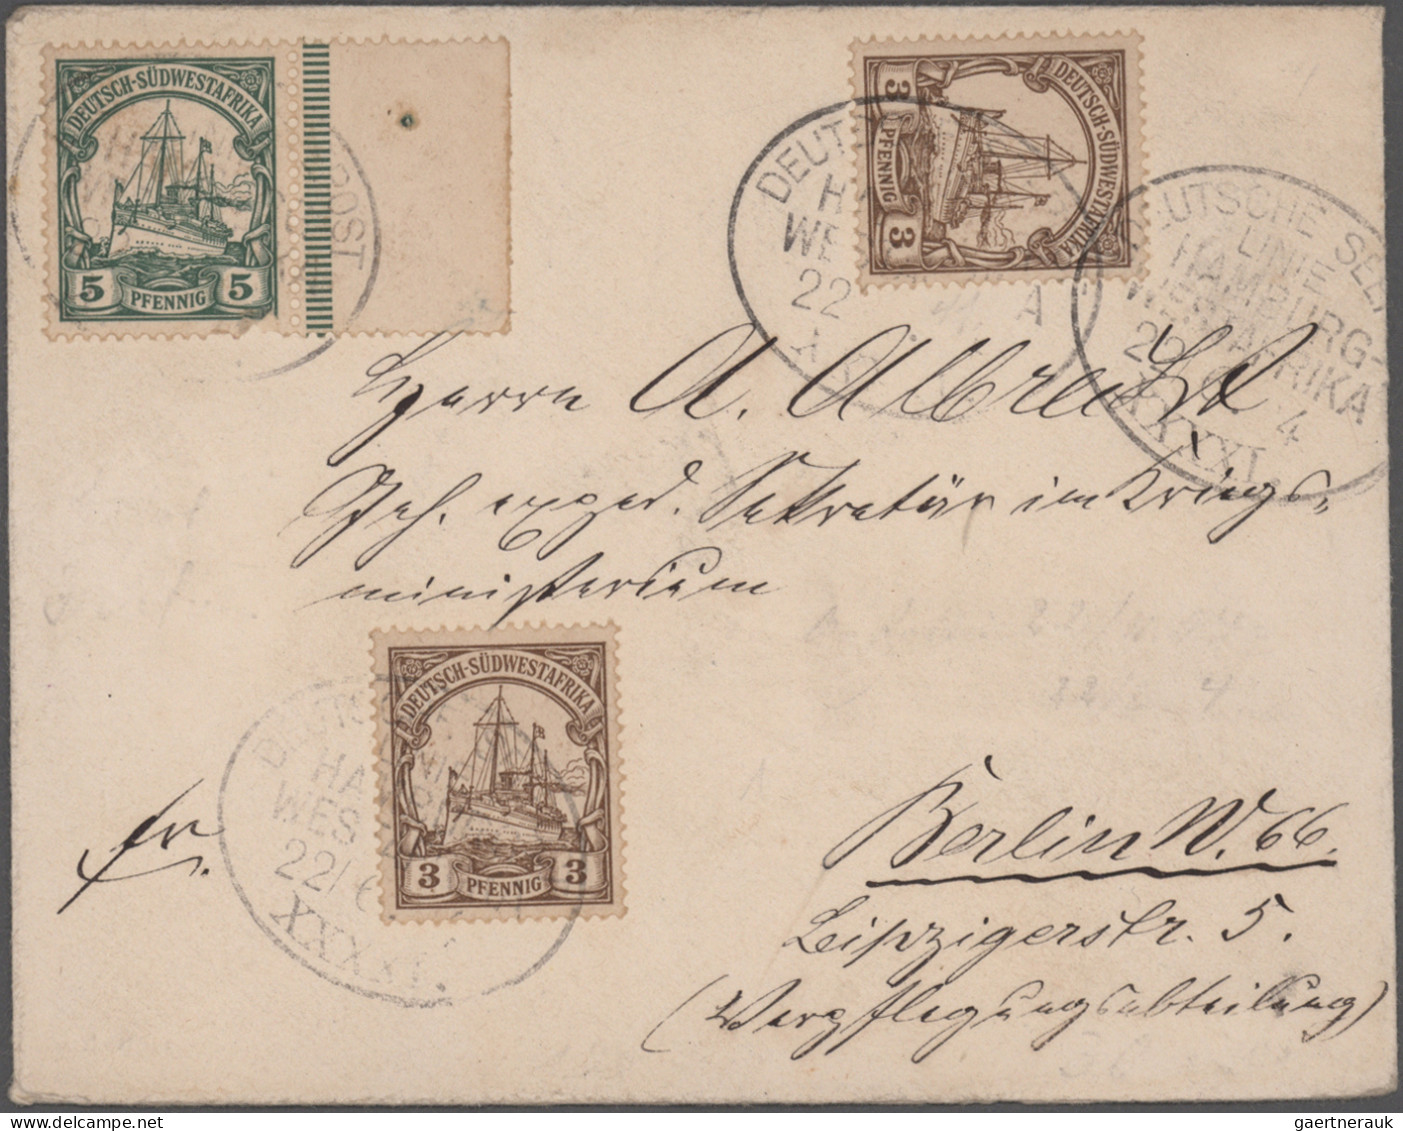 DEUTSCH-SÜDWESTAFRIKA
5 PFENNIG 5
POST
DEUTSCH-SÜDWESTAFRIKA
3 PFENNIG 3
DEUTSCHE SEE
LINIE
HAMBURG-
WESTAFRIKA
22 4
XXXXI.
DEUT
HA
WE
22 A
X
Herrn A. Albrecht
Geh. exped. Sekretär im Kriegs-
ministerium
DEUTSCH-SÜDWESTAFRIKA
3 PFENNIG 3
DEUTS
HA
WES
22/6
XXXXI.
fr.
Berlin W. 66.
Leipzigerstr. 5.
(Verpflegungsabteilung)
gaertnerauk